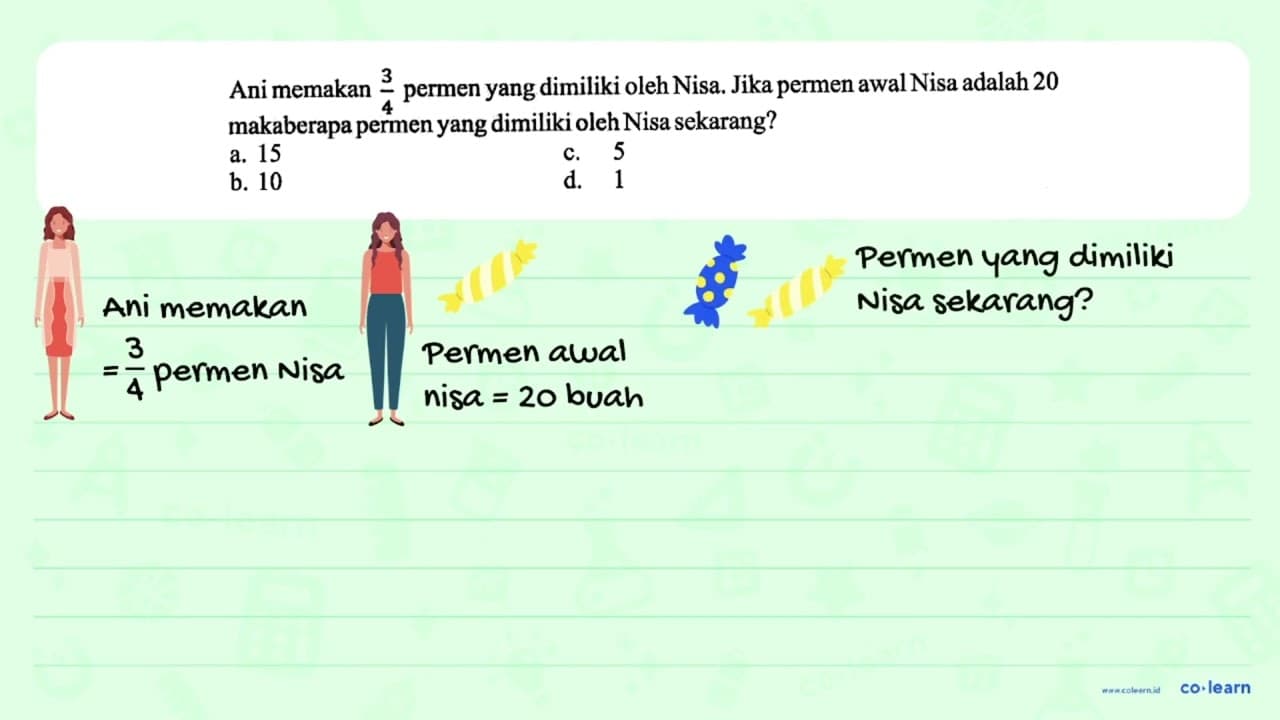 Ani memakan 3/4 permen yang dimiliki oleh Nisa. Jika permen awal Nisa adalah 20
makaberapa permen yang dimiliki oleh Nisa sekarang?
a. 15 c. 5
b. 10 d. 1
Permen yang dimiliki
Nisa sekarang?
Ani memakan
= 3/4 permen Nisa
Permen awal
nisa = 20 buah
www.colearn.id co·learn